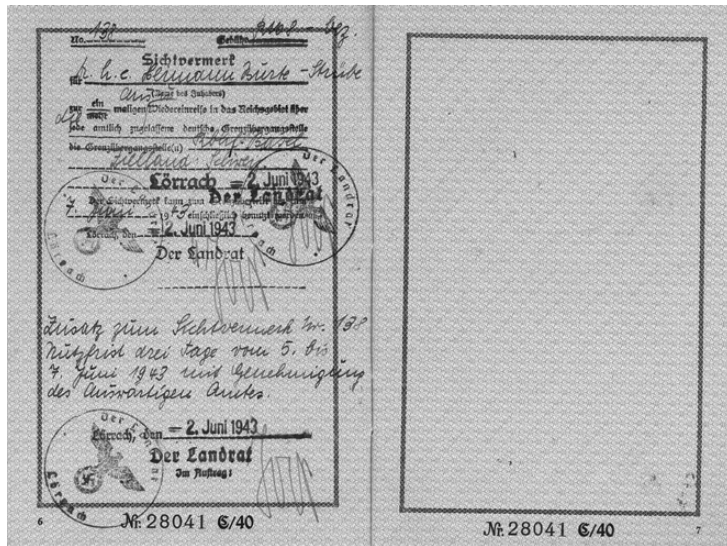 No. 138 Gebühr:
Sichtvermerk
für h. c. Hermann Burte - Strübe
(Name des Inhabers)
zur ein mehr maligen Wiedereinreise in das Reichsgebiet über
jede amtlich zugelassene deutsche Grenzübergangsstelle
die Grenzübergangsstelle(n) Basel
Lörrach = 2. Juni 1943
Der Landrat
Der Sichtvermerk kann
7. Juni 1943 einschließlich benutzt werden.
Lörrach, den = 2. Juni 1943
Der Landrat
Der Landrat
Lörrach
Der Landrat
Zusatz zum Sichtvermerk Nr. 138
Nutzfrist drei Tage vom 5. bis
7. Juni 1943 mit Genehmigung
des Auswärtigen Amtes.
Lörrach, den = 2. Juni 1943
Der Landrat
Im Auftrag:
Der Landrat
Lörrach
6
Nr. 28041 C/40
Nr. 28041 C/40
7